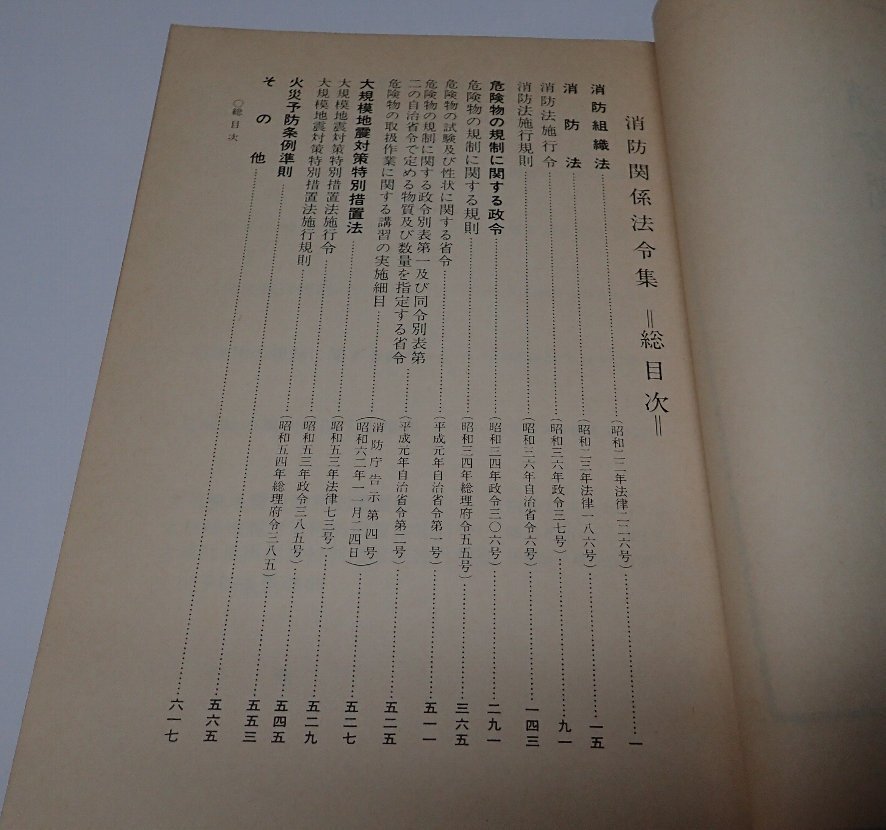 消防関係法令集 ＝総目次＝
消防組織法……(昭和二二年法律二二六号)……一
消防法……(昭和二三年法律一八六号)……一五
消防法施行令……(昭和三六年政令三七号)……九一
消防法施行規則……(昭和三六年自治省令六号)……一四三
危険物の規制に関する政令……(昭和三四年政令三〇六号)……二九一
危険物の規制に関する規則……(昭和三四年総理府令五五号)……三六五
危険物の試験及び性状に関する省令……(平成元年自治省令第一号)……五一一
危険物の規制に関する政令別表第一及び同令別表第
二の自治省令で定める物質及び数量を指定する省令……(平成元年自治省令第二号)……五二五
危険物の取扱作業に関する講習の実施細目……(消防庁告示第四号 昭和六二年一一月二四日)……五二七
大規模地震対策特別措置法……(昭和五三年法律七三号)……五二九
大規模地震対策特別措置法施行令……(昭和五三年政令三八五号)……五四五
大規模地震対策特別措置法施行規則……(昭和五四年総理府令三八五)……五五三
火災予防条例準則……五六五
その他……六一七
〇総目次